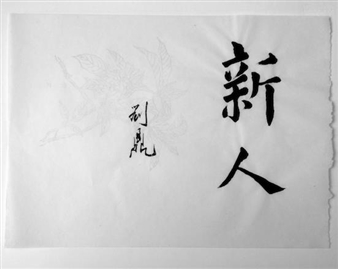 新人
刘鼎